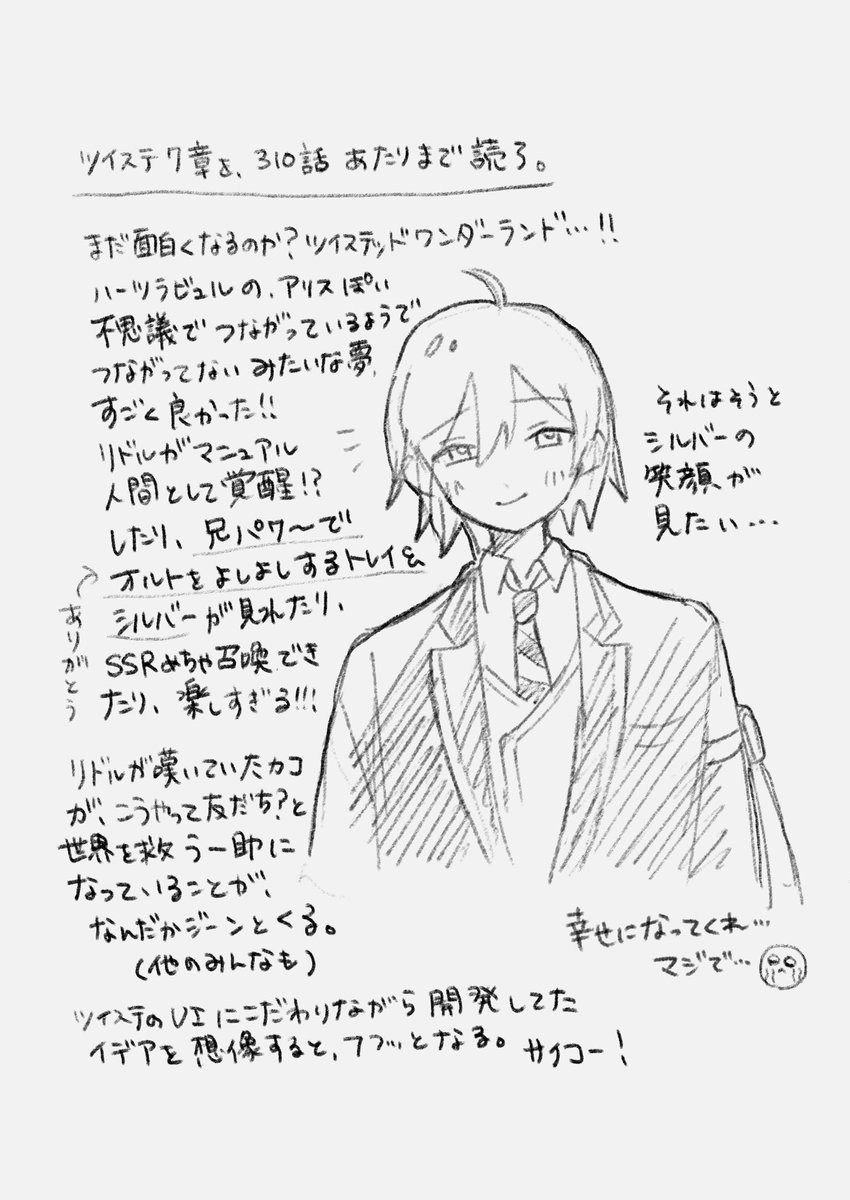 ツイステ7章を、310話 あたりまで 読了。
まだ面白くなるのか?ツイステッドワンダーランド…!!
ハーツラビュルの、アリスぽい
不思議で つながっているようで
つながってない みたいな夢、
すごく良かった!!
リドルがマニュアル
人間として覚醒!?
したり、兄パワ〜で
オルトをよしよしするトレイ&
シルバーが見れたり、
ありがとう
SSRめちゃ召喚でき
たり、楽しすぎる!!!
リドルが嘆いていたカコ
が、こうやって友だち?と
世界を救う一助に
なっていることが、
なんだかジーンとくる。
(他のみんなも)
ツイステのUIにこだわりながら開発してた
イデアを想像すると、フフッとなる。 サイコー!
それはそうと
シルバーの
笑顔が
見たい…
幸せになってくれ…
マジで…